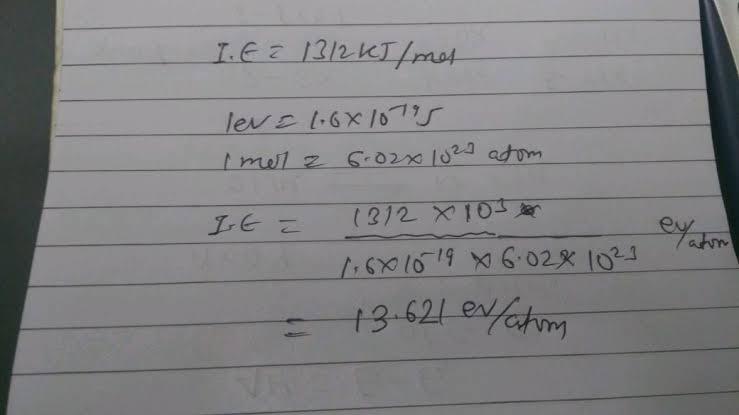 I.E = 1312 KJ/mol
1ev = 1.6×10⁻¹⁹J
1 mol = 6.02×10²³ atom
I.E = 1312 × 10³
1.6×10⁻¹⁹ × 6.02 × 10²³ ev/atom
= 13.621 ev/atom